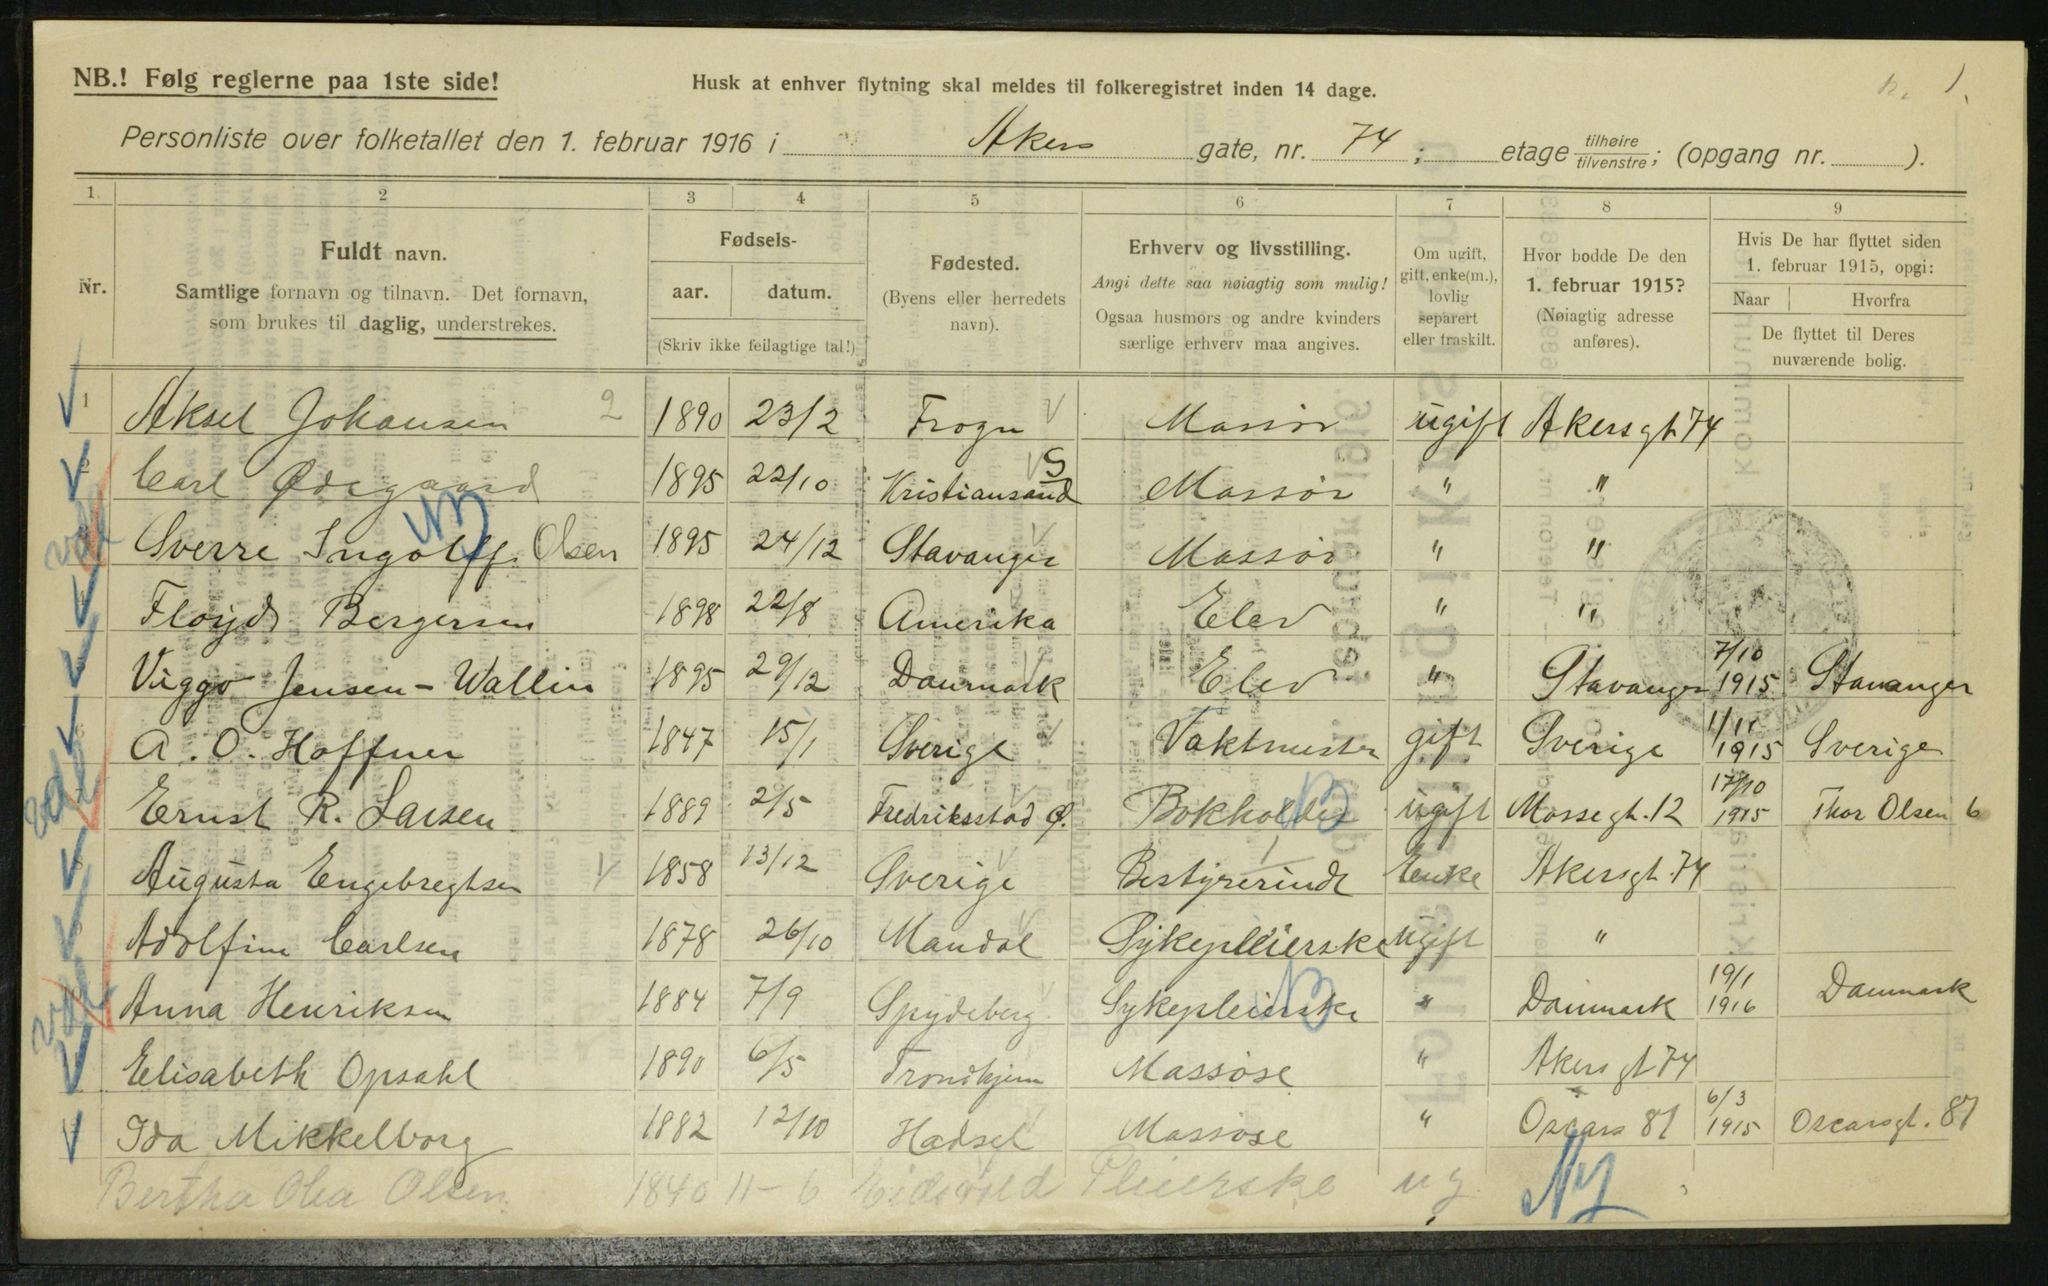 NB.! Følg reglerne paa 1ste side!
Husk at enhver flytning skal meldes til folkeregistret inden 14 dage.
Personliste over folketallet den 1. februar 1916 i Akers gate, nr. 74 ; etage tilhøire/tilvenstre; (opgang nr. ).
1. 2 3 4 5 6 7 8 9
Nr.
Fuldt navn.
Samtlige fornavn og tilnavn. Det fornavn,
som brukes til daglig, understrekes.
Fødsels-
aar. datum.
(Skriv ikke feilagtige tal!)
Fødested.
(Byens eller herredets
navn).
Erhverv og livsstilling.
Angi dette saa nøiagtig som mulig!
Ogsaa husmors og andre kvinders
særlige erhverv maa angives.
Om ugift,
gift, enke(m.),
lovlig
separert
eller fraskilt.
Hvor bodde De den
1. februar 1915?
(Nøiagtig adresse
anføres).
Hvis De har flyttet siden
1. februar 1915, opgi:
Naar Hvorfra
De flyttet til Deres
nuværende bolig.
1 Aksel Johansen 2 1890 23/2 Frogn Massør ugift Akersgt 74
Carl Ødegaard 1895 22/10 Kristiansand S Massør " "
Sverre Ingolf Olsen 1895 24/12 Stavanger Massør " "
Floyd Bergersen 1898 22/8 Amerika Elev " "
Viggo Jensen-Wallin 1895 29/12 Danmark Elev " Stavanger 7/10 1915 Stavanger
A. O. Hoffner 1847 15/1 Sverige Vaktmester gift Sverige 1/11 1915 Sverige
Ernst R. Larsen 1889 2/5 Fredriksstad Ø. Bokholder ugift Mossegt. 12 17/10 1915 Thor Olsen 6
Augusta Engebregtsen 1 1858 13/12 Sverige Bestyrerinde Enke Akersgt. 74
Adolfine Carlsen 1878 26/10 Mandal Sykepleierske ugift "
Anna Henriksen 1884 7/9 Spydeberg Sykepleierske " Danmark 19/1 1916 Danmark
Elisabeth Opsahl 1890 6/5 Trondhjem Massøse " Akersgt 74
Ida Mikkelborg 1882 12/10 Hadsel Massøse " Oscars 81 6/3 1915 Oscarsgt. 81
Bertha Olea Olsen 1840 11-6 Eidsvold Pleierske ug